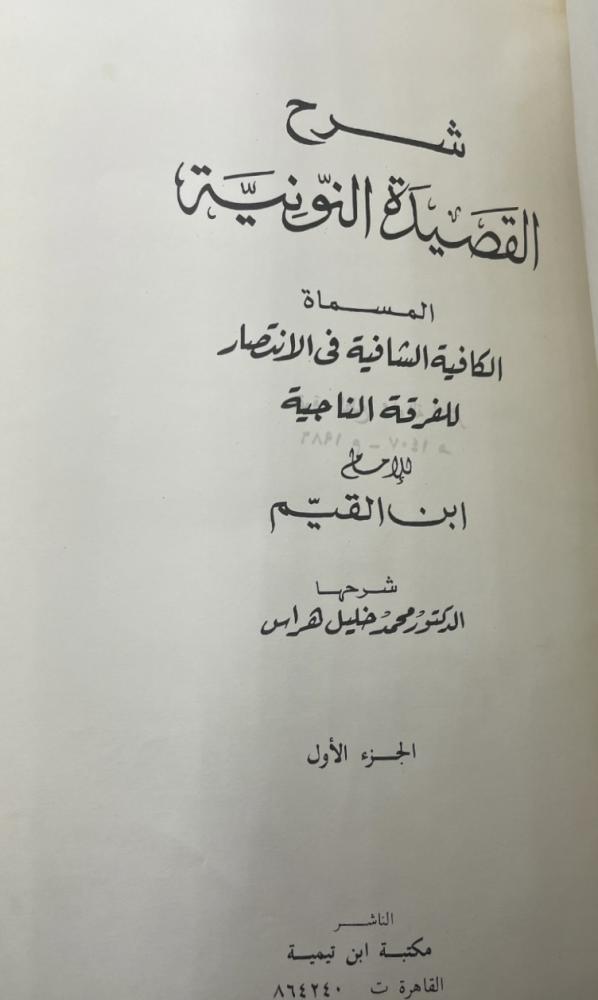 شرح
القصيدة النونيّة
المسماة
الكافية الشافية فى الانتصار
للفرقة الناجية
للإمام
ابن القيّم
شرحها
الدكتور محمد خليل هراس
الجزء الأول
الناشر
مكتبة ابن تيمية
القاهرة ت ٨٦٤٢٤٠